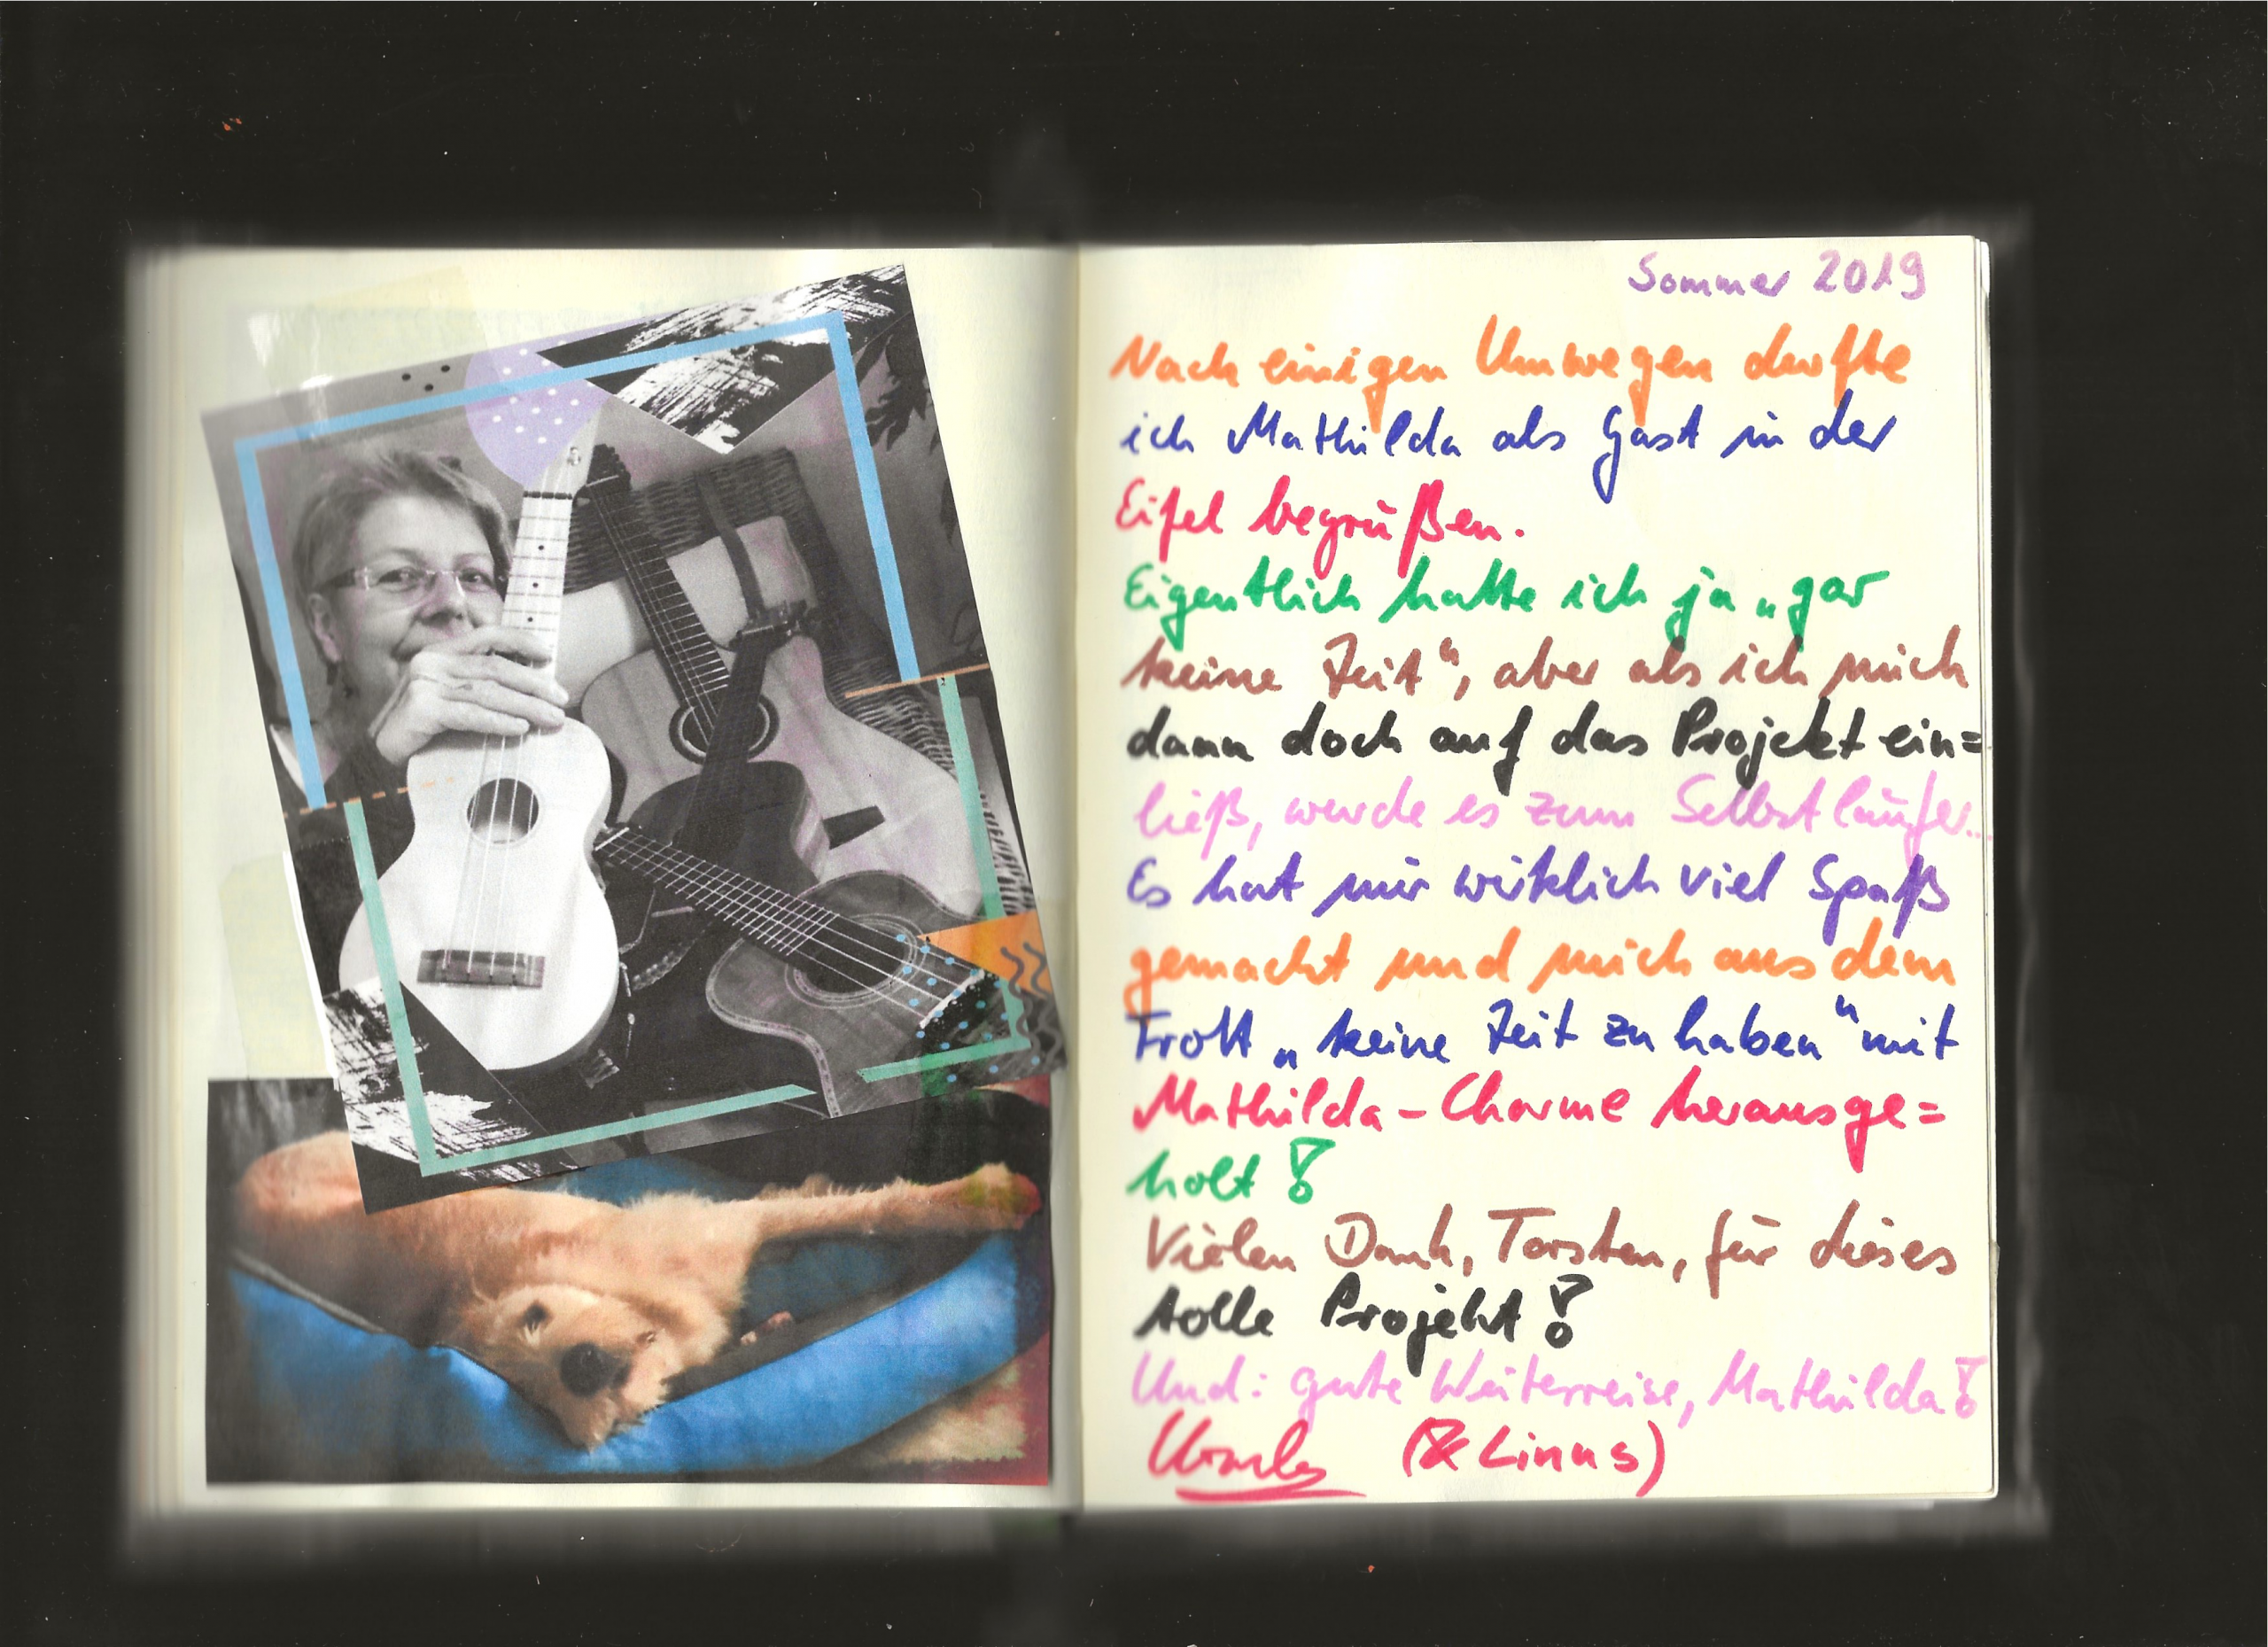 Sommer 2019
Nach einigen Umwegen durfte
ich Mathilda als Gast in der
Eifel begrüßen.
Eigentlich hatte ich ja „gar
keine Zeit“, aber als ich mich
dann doch auf das Projekt ein=
ließ, wurde es zum Selbstläufer...
Es hat mir wirklich viel Spaß
gemacht und mich aus dem
Trott „keine Zeit zu haben“ mit
Mathilda-Charme herausge=
holt!
Vielen Dank, Torsten, für dieses
tolle Projekt!
Und: gute Weiterreise, Mathilda!
Ursula (& Linus)